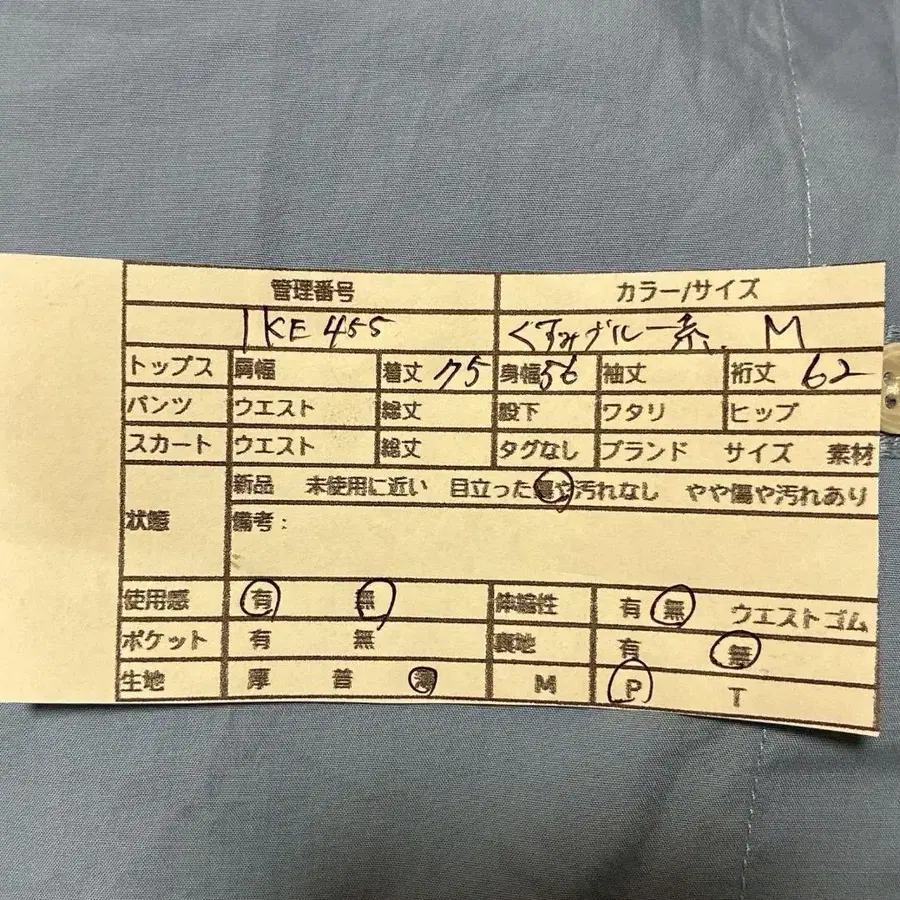 管理番号 カラー/サイズ
IKE 455 くすみブルー系 M
トップス 肩幅 着丈 75 身幅 56 袖丈 裄丈 62
パンツ ウエスト 総丈 股下 ワタリ ヒップ
スカート ウエスト 総丈 タグなし ブランド サイズ 素材
新品 未使用に近い 目立った傷や汚れなし やや傷や汚れあり
状態 備考:
使用感 有 無 伸縮性 有 無 ウエストゴム
ポケット 有 無 裏地 有 無
生地 厚 普 薄 M P T